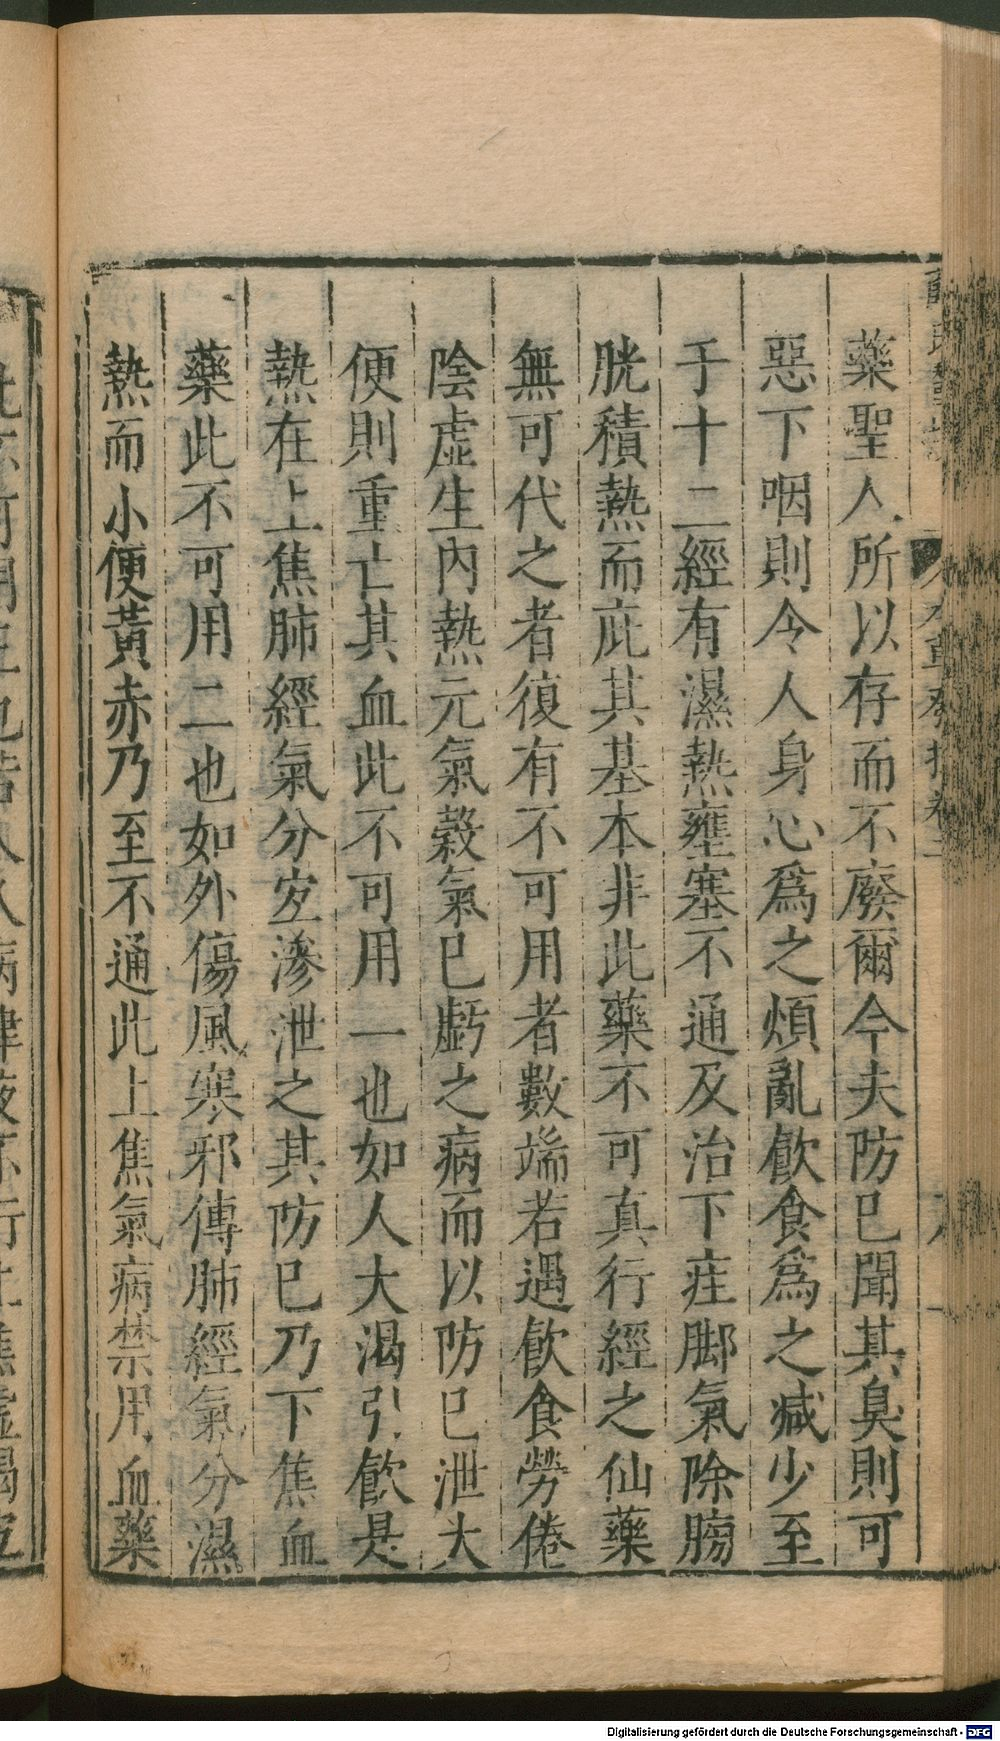 藥聖人所以存而不廢爾今夫防已聞其臭則可
惡下咽則令人身心爲之煩亂飲食爲之减少至
于十二經有濕熱壅塞不通及治下疰脚氣除膀
胱積熱而庇其基本非此藥不可真行經之仙藥
無可代之者復有不可用者數端若遇飲食勞倦
陰虛生內熱元氣穀氣已虧之病而以防已泄大
便則重亡其血此不可用一也如人大渴引飲是
熱在上焦肺經氣分宜滲泄之其防已乃下焦血
藥此不可用二也如外傷風寒邪傳肺經氣分濕
熱而小便黃赤乃至不通此上焦氣病禁用血藥
Digitalisierung gefördert durch die Deutsche Forschungsgemeinschaft - DFG